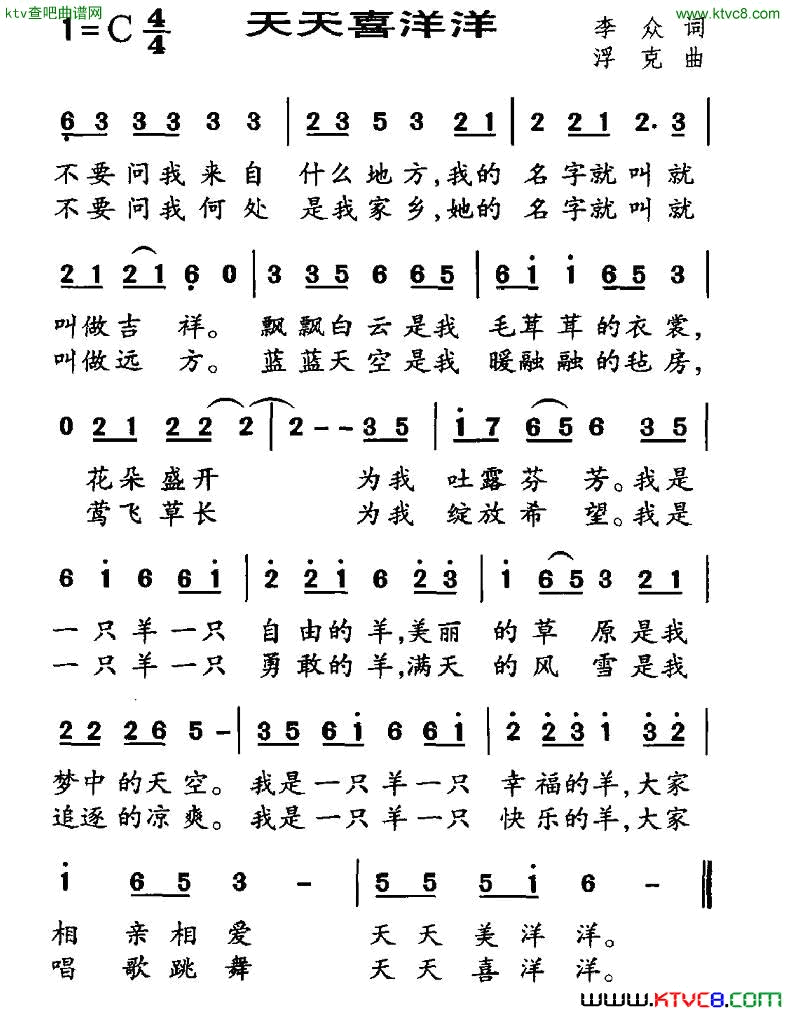 ktv查吧曲谱网
www.ktvc8.com
1=C 4/4 天天喜洋洋 李众词
浮克曲
6 3 3 3 3 3 | 2 3 5 3 2 1 | 2 2 1 2· 3 |
不要问我来自 什么地方,我的 名字就叫就
不要问我何处 是我家乡,她的 名字就叫就
2 1 2 1 6 0 | 3 3 5 6 6 5 | 6 i i 6 5 3 |
叫做吉祥。飘飘白云是我 毛茸茸的衣裳,
叫做远方。蓝蓝天空是我 暖融融的毡房,
0 2 1 2 2 2 | 2 - - 3 5 | i 7 6 5 6 3 5 |
花朵盛开 为我 吐露芬芳。我是
莺飞草长 为我 绽放希望。我是
6 i 6 6 i | 2 2 i 6 2 3 | i 6 5 3 2 1 |
一只羊一只 自由的羊,美丽 的草原是我
一只羊一只 勇敢的羊,满天 的风雪是我
2 2 2 6 5 - | 3 5 6 i 6 6 i | 2 2 3 i 3 2 |
梦中的天空。我是一只羊一只 幸福的羊,大家
追逐的凉爽。我是一只羊一只 快乐的羊,大家
i 6 5 3 - | 5 5 5 i 6 - ‖
相亲相爱 天天美洋洋。
唱歌跳舞 天天喜洋洋。
www.KTVC8.com